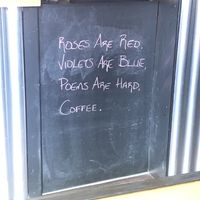 Roses Are Red,
Violets Are Blue,
Poems Are Hard,
Coffee.